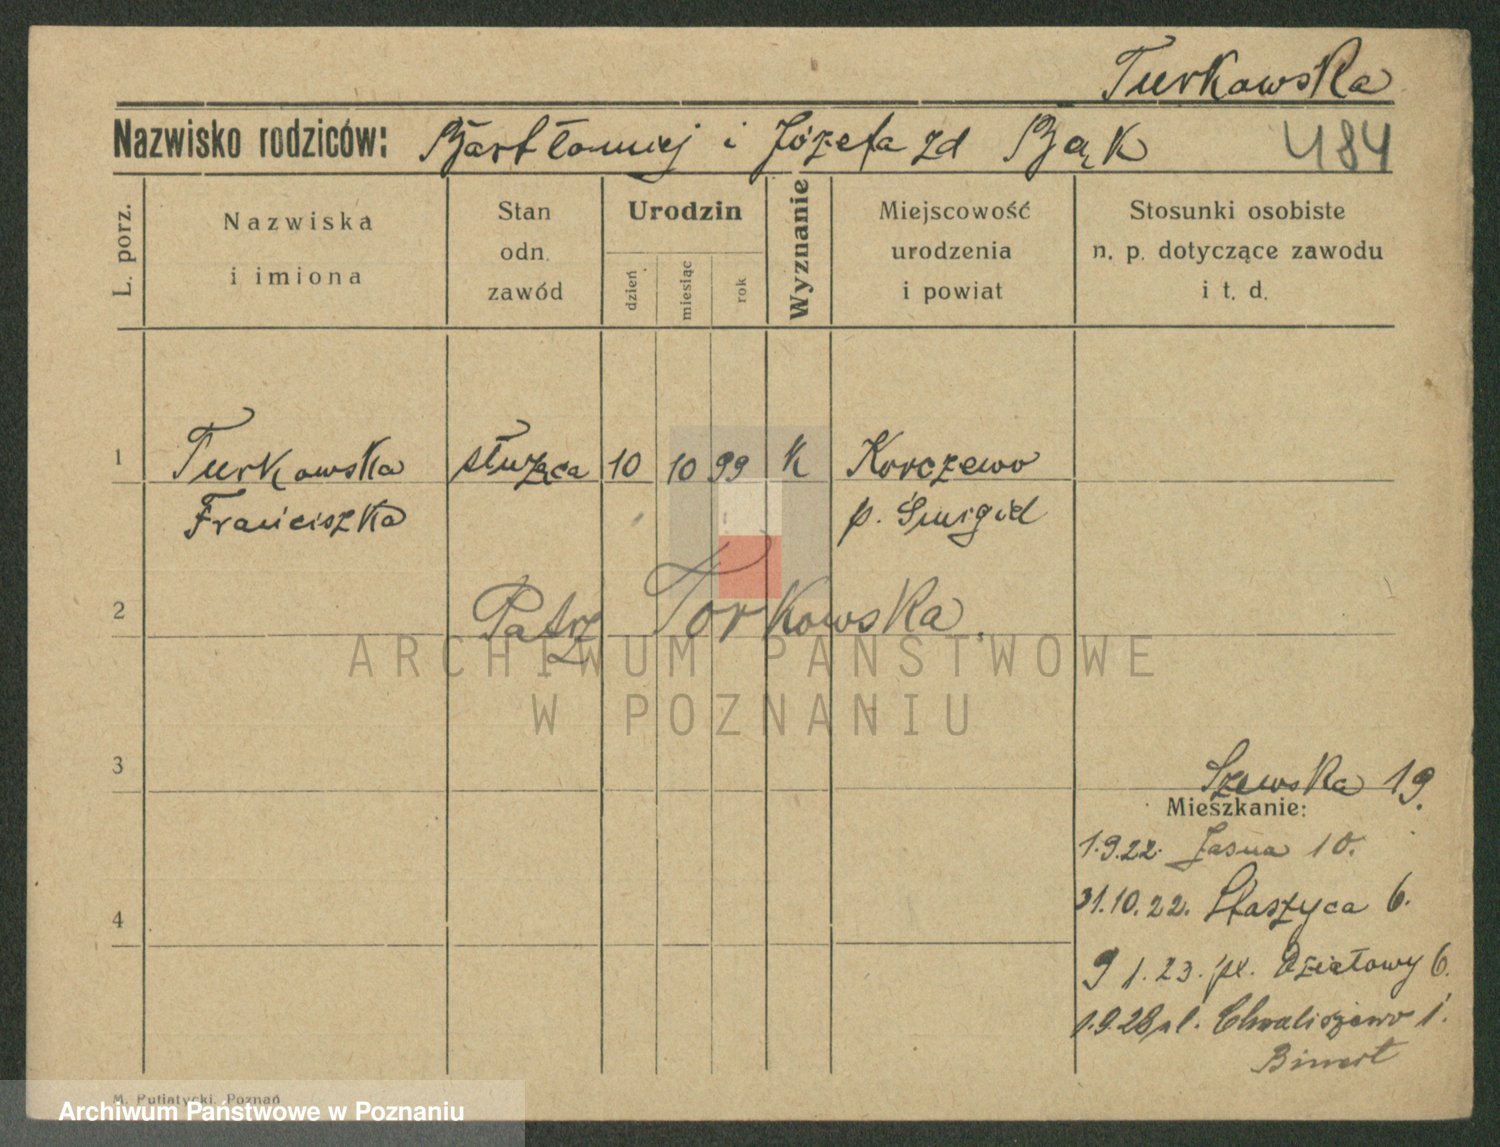 Turkowska
Nazwisko rodziców: Bartłomiej i Józefa zd Bąk 484
L. porz.
Nazwiska i imiona
Stan odn. zawód
Urodzin
dzień
miesiąc
rok
Wyznanie
Miejscowość urodzenia i powiat
Stosunki osobiste n. p. dotyczące zawodu i t. d.
1 Turkowska służąca 10 10 99 k Korczewo
Franciszka p. Śmigid
2 Patrz Torkowska.
ARCHIWUM PAŃSTWOWE
W POZNANIU
3
Szewska 19.
Mieszkanie:
1.9.22. Jasna 10.
31.10.22. Staszyca 6.
4
9 1.23. pl. Działowy 6.
1.9.23 pl. Chwaliszewo 1.
M. Putiatycki, Poznań
Archiwum Państwowe w Poznaniu